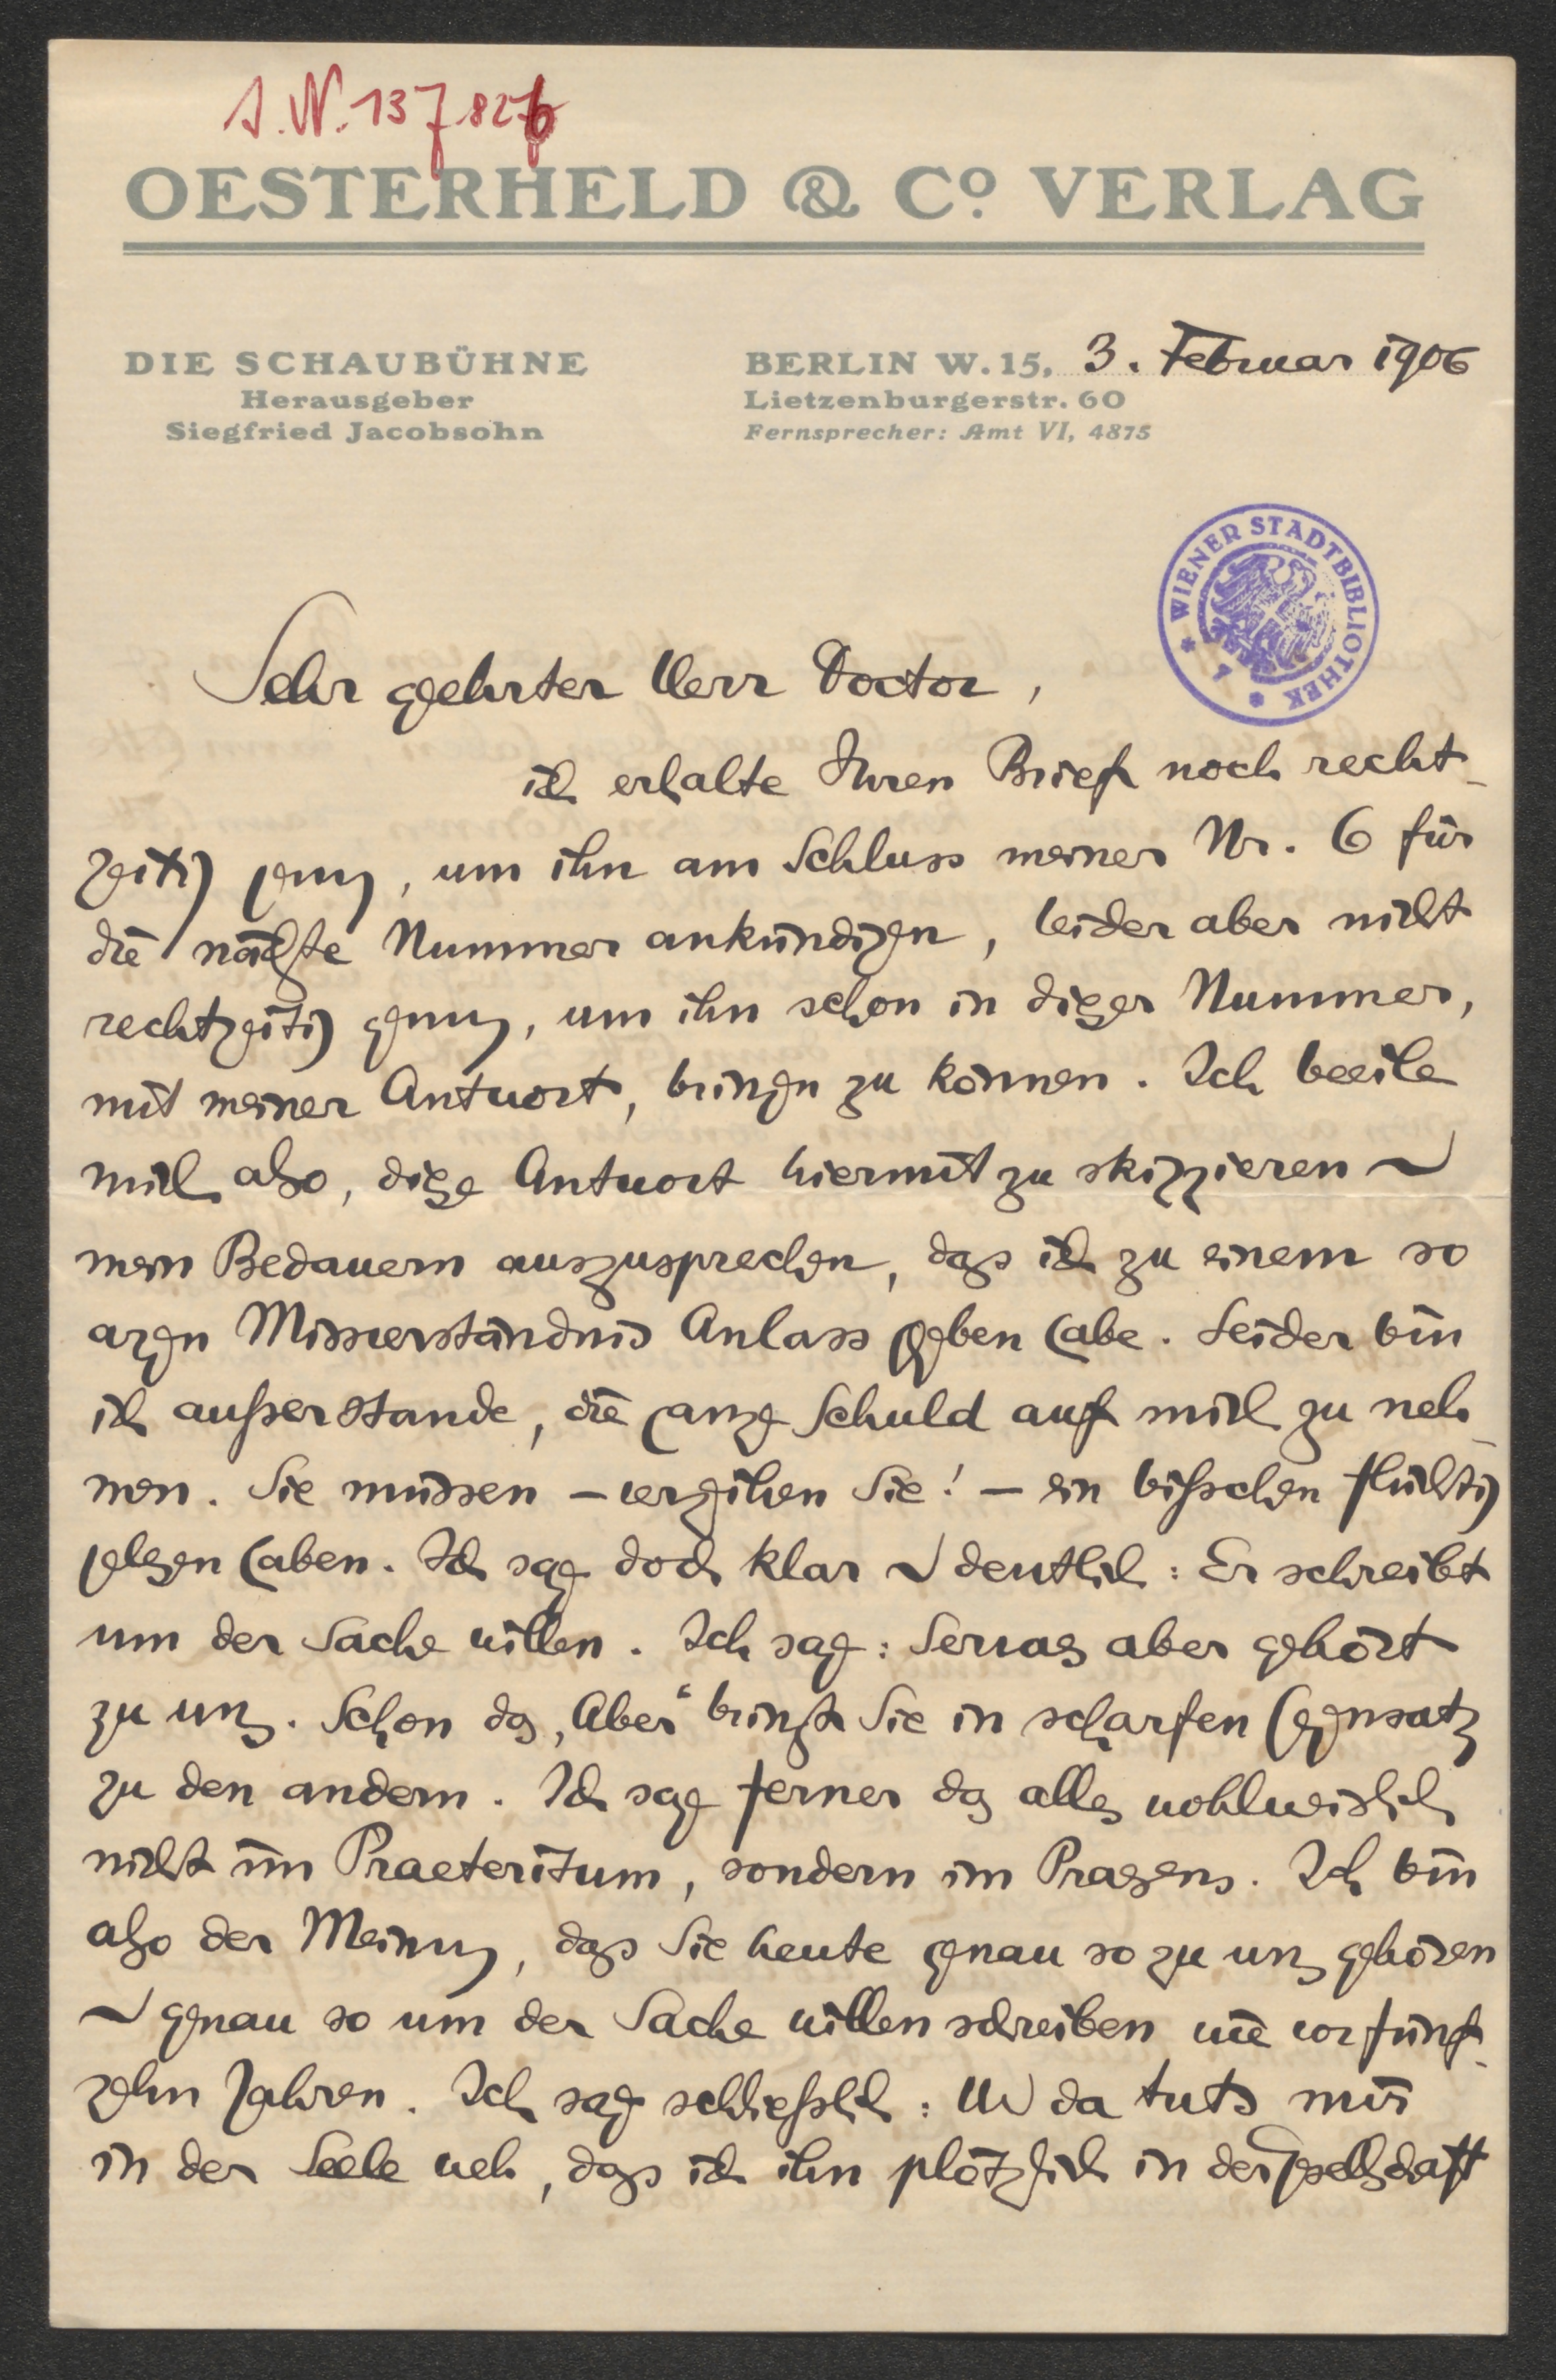 J.N. 137826
OESTERHELD & Co. VERLAG
DIE SCHAUBÜHNE
Herausgeber
Siegfried Jacobsohn
BERLIN W. 15, 3. Februar 1906
Lietzenburgerstr. 60
Fernsprecher: Amt VI, 4875
* WIENER STADTBIBLIOTHEK *
Sehr geehrter Herr Doctor,
ich erhalte Ihren Brief noch recht-
zeitig genug, um ihn am Schluss meiner Nr. 6 für
die nächste Nummer ankündigen, leider aber nicht
rechtzeitig genug, um ihn schon in dieser Nummer,
mit meiner Antwort, bringen zu können. Ich beeile
mich also, diese Antwort hiermit zu skizzieren und
mein Bedauern auszusprechen, dass ich zu einem so
argen Missverständnis Anlass gegeben habe. Leider bin
ich außerstande, die ganze Schuld auf mich zu neh-
men. Sie müssen – verzeihen Sie! – ein bißchen flüchtig
gelesen haben. Ich sage doch klar und deutlich: Er schreibt
um der Sache willen. Ich sage: Servaes aber gehört
zu uns. Schon das „Aber“ bringt Sie in scharfen Gegensatz
zu den andern. Ich sage ferner das alles wohlweislich
nicht im Praeteritum, sondern im Praesens. Ich bin
also der Meinung, dass Sie heute genau so zu uns gehören
und genau so um der Sache willen schreiben wie vor fünf-
zehn Jahren. Ich sage schließlich: Und da tuts mir
in der Seele weh, dass ich ihn plötzlich in der Gesellschaft